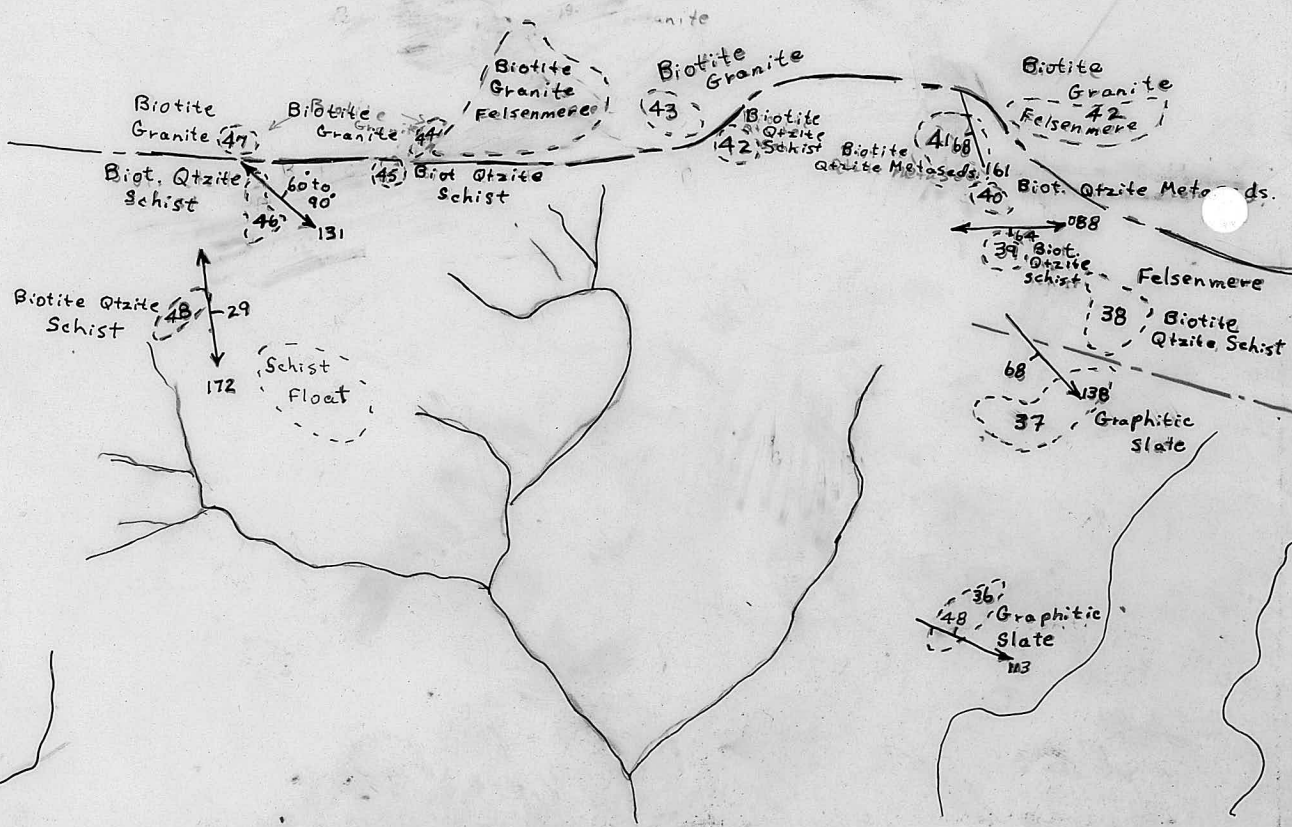 anite
Biotite
Granite
Felsenmere
Biotite
Granite
Biotite
Granite
42
Felsenmere
Biotite
Granite
47
Biotite
Granite
44
43
Biotite
Qtzite
Schist
42
41
68
Biotite
Qtzite Metaseds.
161
40
Biot. Qtzite Metaseds.
Biot. Qtzite
Schist
46
60° to
90°
131
45
Biot Qtzite
Schist
088
64
39
Biot.
Qtzite
Schist
Felsenmere
38
Biotite
Qtzite Schist
Biotite Qtzite
Schist
48
29
172
Schist
Float
68
138
37
Graphitic
Slate
36
48
Graphitic
Slate
113